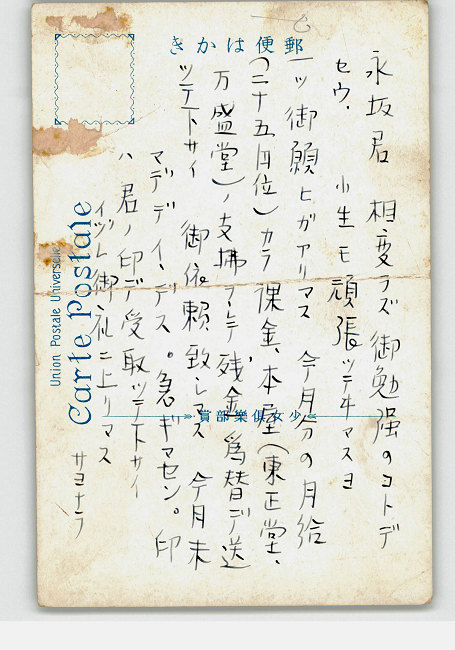 きかは便郵
永坂君 相変ラズ御勉強のコトデ
セウ. 小生モ頑張ッテヰマスヨ
一ツ御願ヒガアリマス 今月分の月給
(二十五円位)カラ課金、本屋(東正堂、
万盛堂)ノ支拂マレテ残金為替デ送
ッテ下サイ 御依頼致シマス 今月末
マデデイヽデス。急ギマセン。印
ハ君ノ印デ受取ッテ下サイ
イヅレ御礼ニ上リマス
サヨナラ
Union Postale Universelle
Carte Postale
賞部樂俱女少